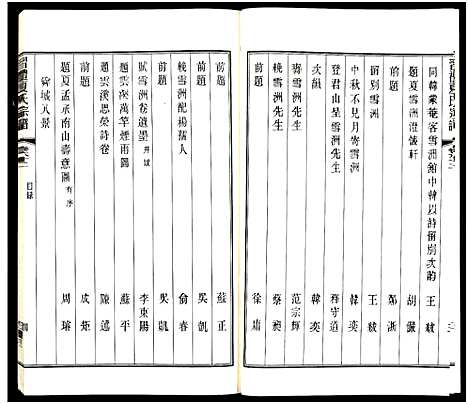 同韓彙菴客雪洲館中韓以詩留別次韵 王紱
題夏雪洲澄懷軒 胡儼
前題 鄭浙
留別雪洲 王紱
中秋不見月寄雪洲 韓奕
登君山呈雪洲先生 釋守道
次韻 韓奕
輓雪洲先生 范宗暉
輓雪洲先生 蔡昶
前題 徐庸
前題 蘇正
輓雪洲龍楊蒲人 俞春
前題 吳凱
賦雪洲卷遺墨 并跋 李東陽
題雲溪萬竿煙雨圖 蘇平
題雲溪思榮詩卷 陳遜
前題 成矩
題夏孟永南山壽意圖 有序 周璿
八景
目錄